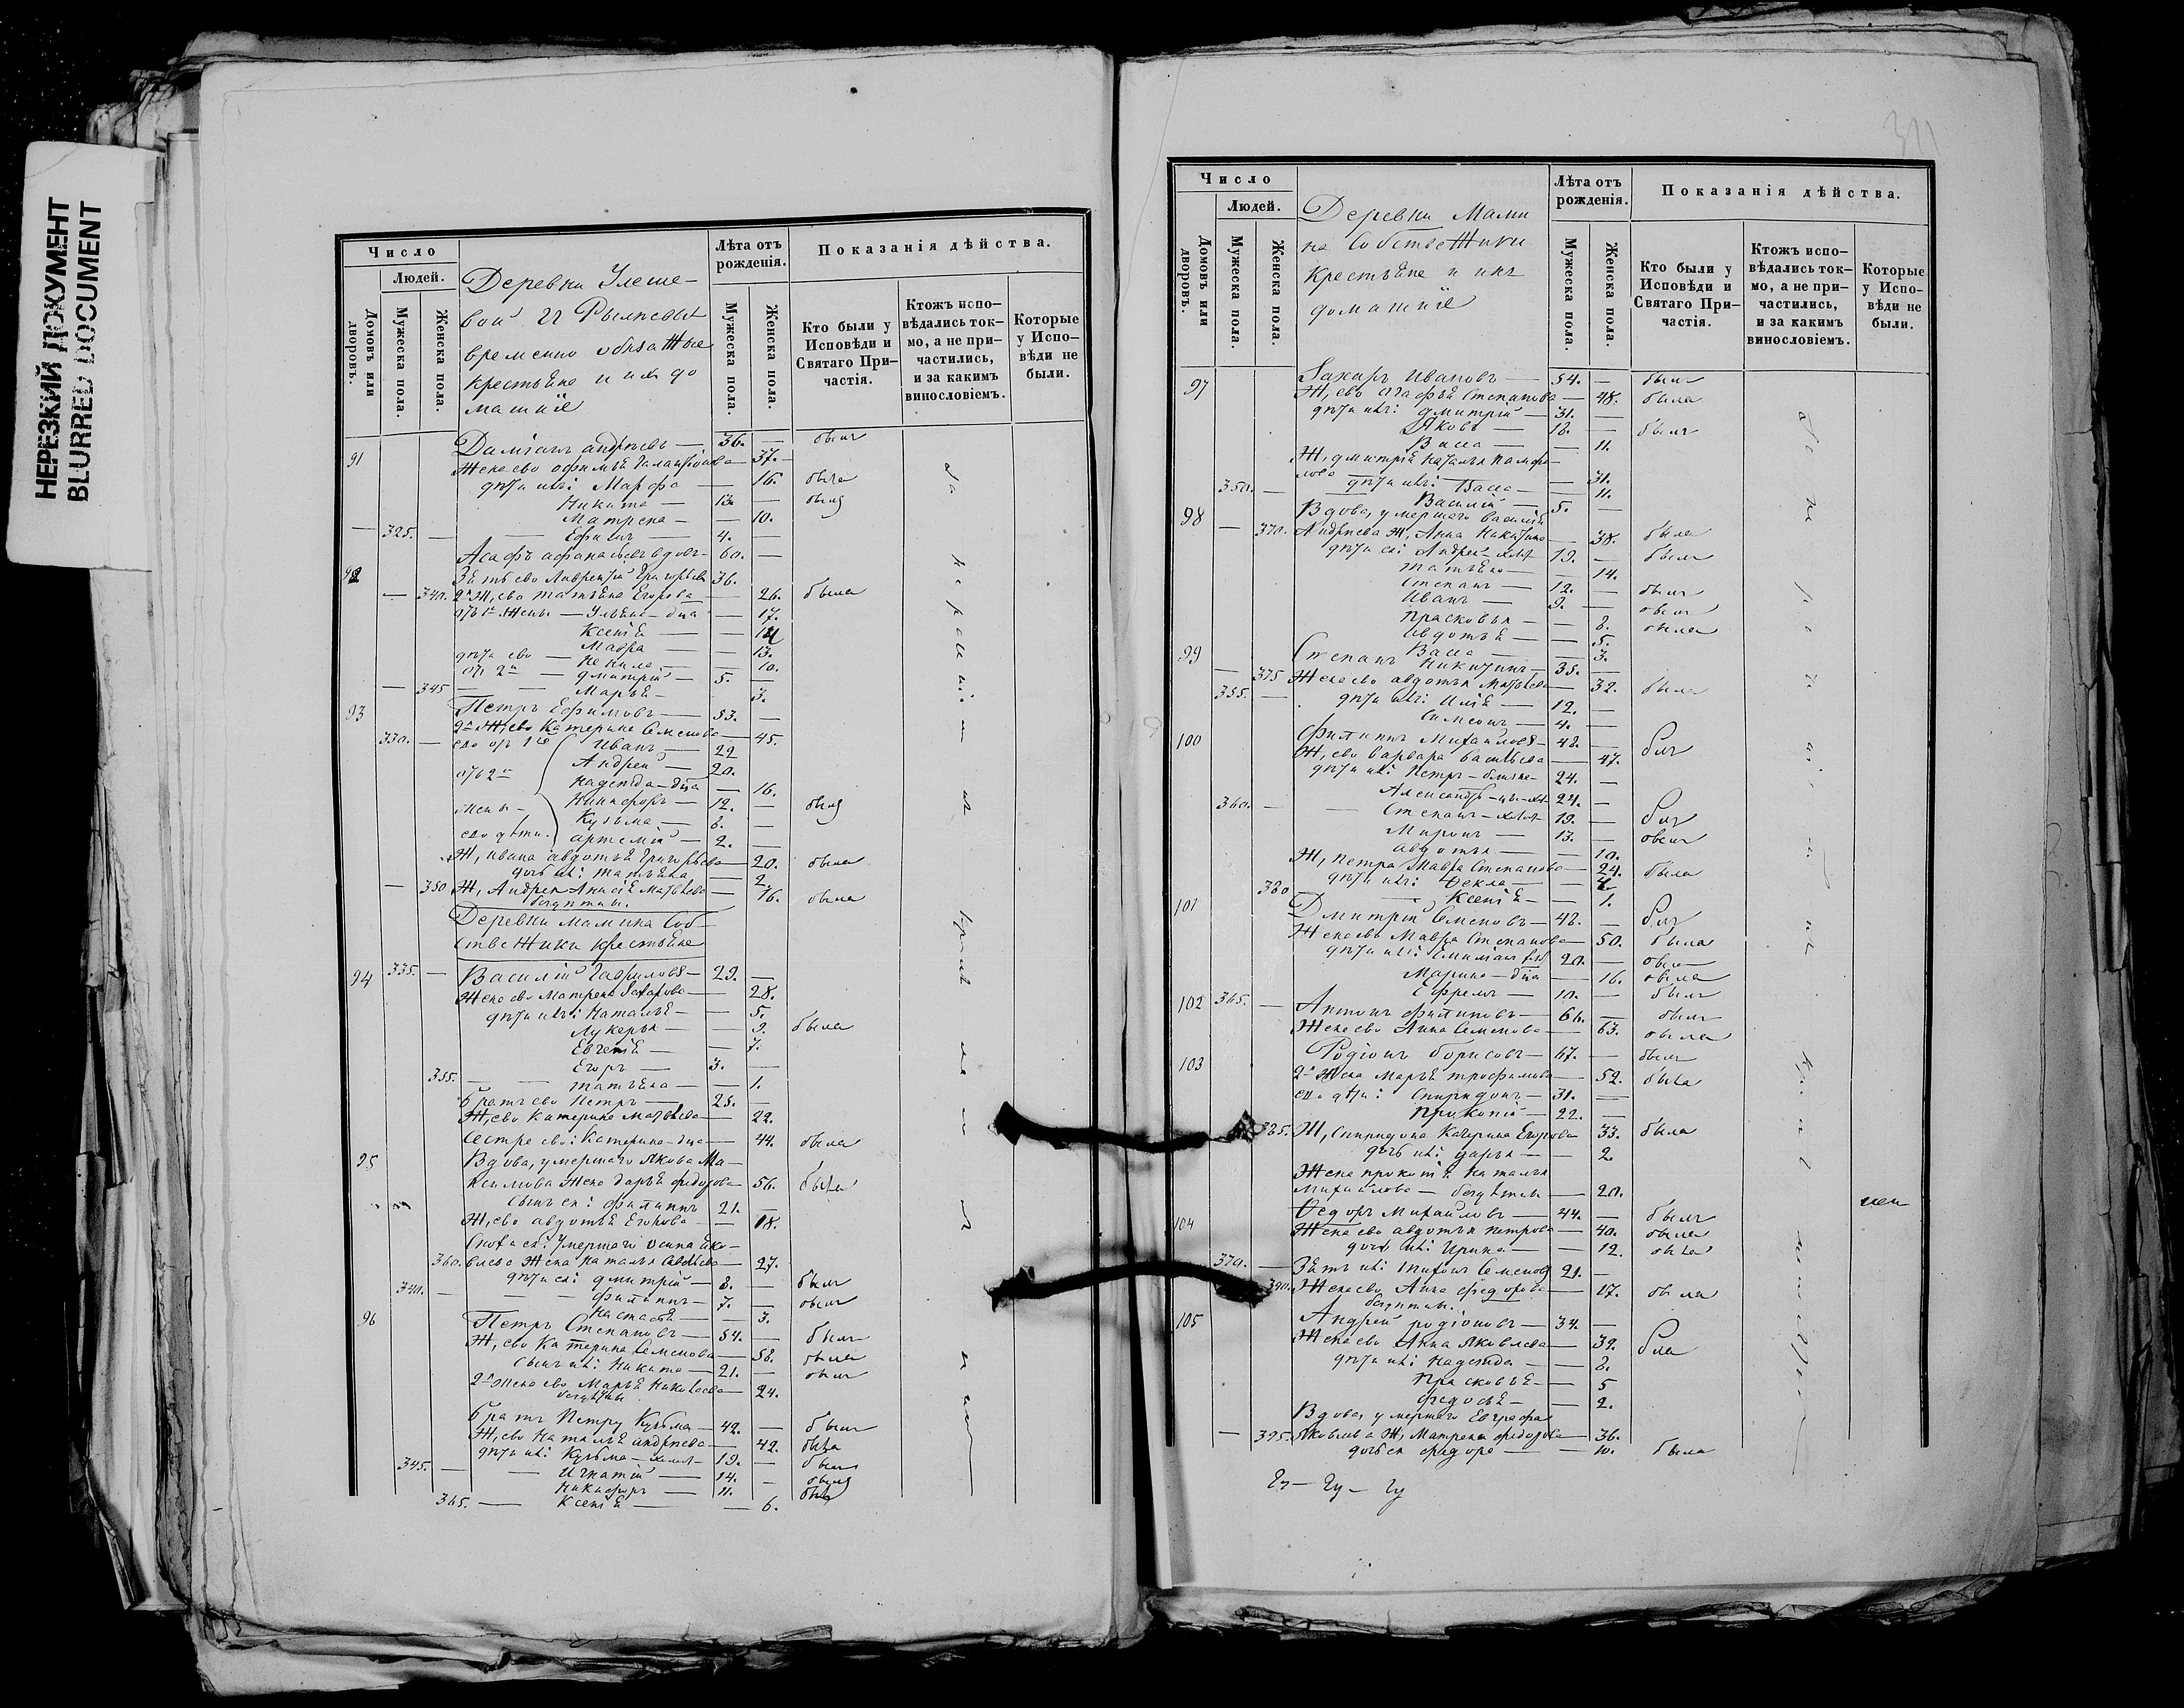 НЕРЕЗКИЙ ДОКУМЕНТ
BLURRED DOCUMENT
Число
Людей.
Домовъ или дворовъ.
Мужеска пола.
Женска пола.
Деревни Улеше-
вой и Рылковы
временно обязанные
крестьяне и ихъ до
машніе
Лѣта отъ рожденія.
Мужеска пола.
Женска пола.
Показанія дѣйства.
Кто были у Исповѣди и Святаго При-частія.
Ктожъ испо-вѣдались ток-мо, а не при-частились, и за какимъ винословіемъ.
Которые у Испо-вѣди не были.
91 Даміанъ Андреевъ — 36. — былъ
Жена ево Офимья — 37.
дѣти ихъ: Марфа — 16. была
Никита — 13. — былъ
Матрена — — 10.
— 325. — Ефимъ — 4. —
92 Асафъ Афанасьевъ вдовъ — 60. —
Зять ево Лаврентій Григорьевъ 36.
— 340. 2я Ж, ево Татьяна Егорова — 26. была
отъ 1й Жены — Ульяна — дца — 17.
Ксенія — — 14
Мавра — — 13.
дѣти ево — Ненила — — 10.
отъ 2й — Дмитрій — 5. —
— 345 — — Марья — 3.
93 Петръ Ефимовъ — 53. —
2я Ж, ево Катерина Семенова — 45.
330. — ево отъ 1й Иванъ — 22
отъ 2й Андрей — 20.
Надежда — дца — 16.
жены — Никифоръ — 12. — былъ
Кузьма — 8. —
ево дѣти. Артемій — 2. —
Ж, Ивана Авдотья Григорьева — 20. была
дочь ихъ: Татьяна — 2.
— 350 Ж, Андрея Анисія Матвѣева — 16. была
бездѣтны.
Деревни Мамина Соб-
ственники крестьяне
94 335. — Василій Гавриловъ — 29. —
Жена ево Матрена Захарова — 28.
дѣти ихъ: Наталья — — 5.
Лукерья — — 9. была
Евгенія — — 7.
Егоръ — 3. —
355. — — Татьяна — — 1.
Братъ ево Петръ — 25. —
Ж, ево Катерина Матвѣева — 22.
Сестра ево: Катерина — дца — 44. была
95 Вдова, умершаго Якова Ма-
ксимова Жена Дарья Федорова — 56. была
Сынъ ея: Филиппъ 21. —
Ж, ево Авдотья Егорова — 18.
Сноха ея: Умершаго Осипа Яко-
360. влева Жена Наталья Савельева — 27.
дѣти ея: Дмитрій — 8. — былъ
340. — — — Филиппъ — 7. — былъ
Настасья — — 3.
96 Петръ Степановъ — 54. — былъ
Ж, ево Катерина Семенова — 58. была
Сынъ ихъ: Никита — 21. — былъ
2я Жена ево Марья Николаева — 24.
бездѣтны
Братъ Петру Кузьма — 42. — былъ
Ж, ево Наталья Андреева — 42. была
дѣти ихъ: Кузьма — холост — 19. — былъ
345. — — Игнатій — 14. — былъ
Никифоръ — 11. былъ
365. — Ксенія — — 6.
311
Число
Людей.
Домовъ или дворовъ.
Мужеска пола.
Женска пола.
Деревни Мами
на Собственники
крестьяне и ихъ
домашніе
Лѣта отъ рожденія.
Мужеска пола.
Женска пола.
Показанія дѣйства.
Кто были у Исповѣди и Святаго При-частія.
Ктожъ испо-вѣдались ток-мо, а не при-частились, и за какимъ винословіемъ.
Которые у Испо-вѣди не были.
97 Захаръ Ивановъ — 54. — былъ
Ж, ево Агафья Степанова — 48. была
дѣти ихъ: Дмитрій — 31. —
Яковъ — 18. — былъ
Васса — — 11.
Ж, Дмитрія Наталья Памфи-
лова — 31.
350. — дѣти ихъ: Васса — — 11.
Василій — 5. —
98 Вдова, умершаго Василія
— 370. Андреева Ж, Анна Никитина — 38. была
дѣти ея: Андрей — холост 19. — былъ
Татьяна — — 14.
Степанъ — 12. — былъ
Иванъ — 9. — былъ
Прасковья — — 8. была
Авдотья — — 5.
Васса — — 3.
99 Степанъ Никитинъ — 35. —
— 375 Жена ево Авдотья Матвѣева — 32. была
355. — дѣти ихъ: Илія — 12. —
Симеонъ — 4. —
100 Филиппъ Михайловъ — 48. — былъ
Ж, ево Варвара Васильева — 47.
дѣти ихъ: Петръ — 24. —
Александръ — 24. —
360. — — Степанъ — холост — 19. — былъ
Миронъ — 13. — былъ
Авдотья — — 10.
Ж, Петра Мавра Степанова — 24. была
дѣти ихъ: Ѳекла — — 4.
380 — Ксенія — — 1.
101 Дмитрій Семеновъ — 48. — былъ
Жена ево Мавра Степанова — 50. была
дѣти ихъ: Емиліанъ 20. — былъ
Марина — дца — 16. была
Ефремъ — 10. — былъ
102 365. — Антонъ Филиповъ — 66. — былъ
Жена ево Анна Семенова — 63. была
103 Родіонъ Борисовъ — 67. — былъ
2я Жена Марья Трофимова — 52. была
ево дѣти: Спиридонъ — 31. —
Прокопій — 22. —
385. Ж, Спиридона Катерина Егорова 33. была
дочь ихъ: Дарья — — 2.
Жена Прокопія Наталья
Михайлова — бездѣтны — 20.
104 Ѳедоръ Михайловъ — 44. — былъ
Жена ево Авдотья Петрова — 40. была
дочь ихъ: Ирина — — 12. была
370. — Зять ихъ: Тихонъ Семеновъ 21. —
390. Жена ево Анна Федорова — 17. была
бездѣтны.
105 Андрей Родіоновъ — 34. —
Жена ево Анна Яковлева — 39. была
дѣти ихъ: Надежда — — 8.
Прасковья — — 5
Федосья — — 2.
Вдова, умершаго Евграфа
— 395. Яковлева Ж, Матрена Федорова — 36.
дочь ея Федора — — 10. была